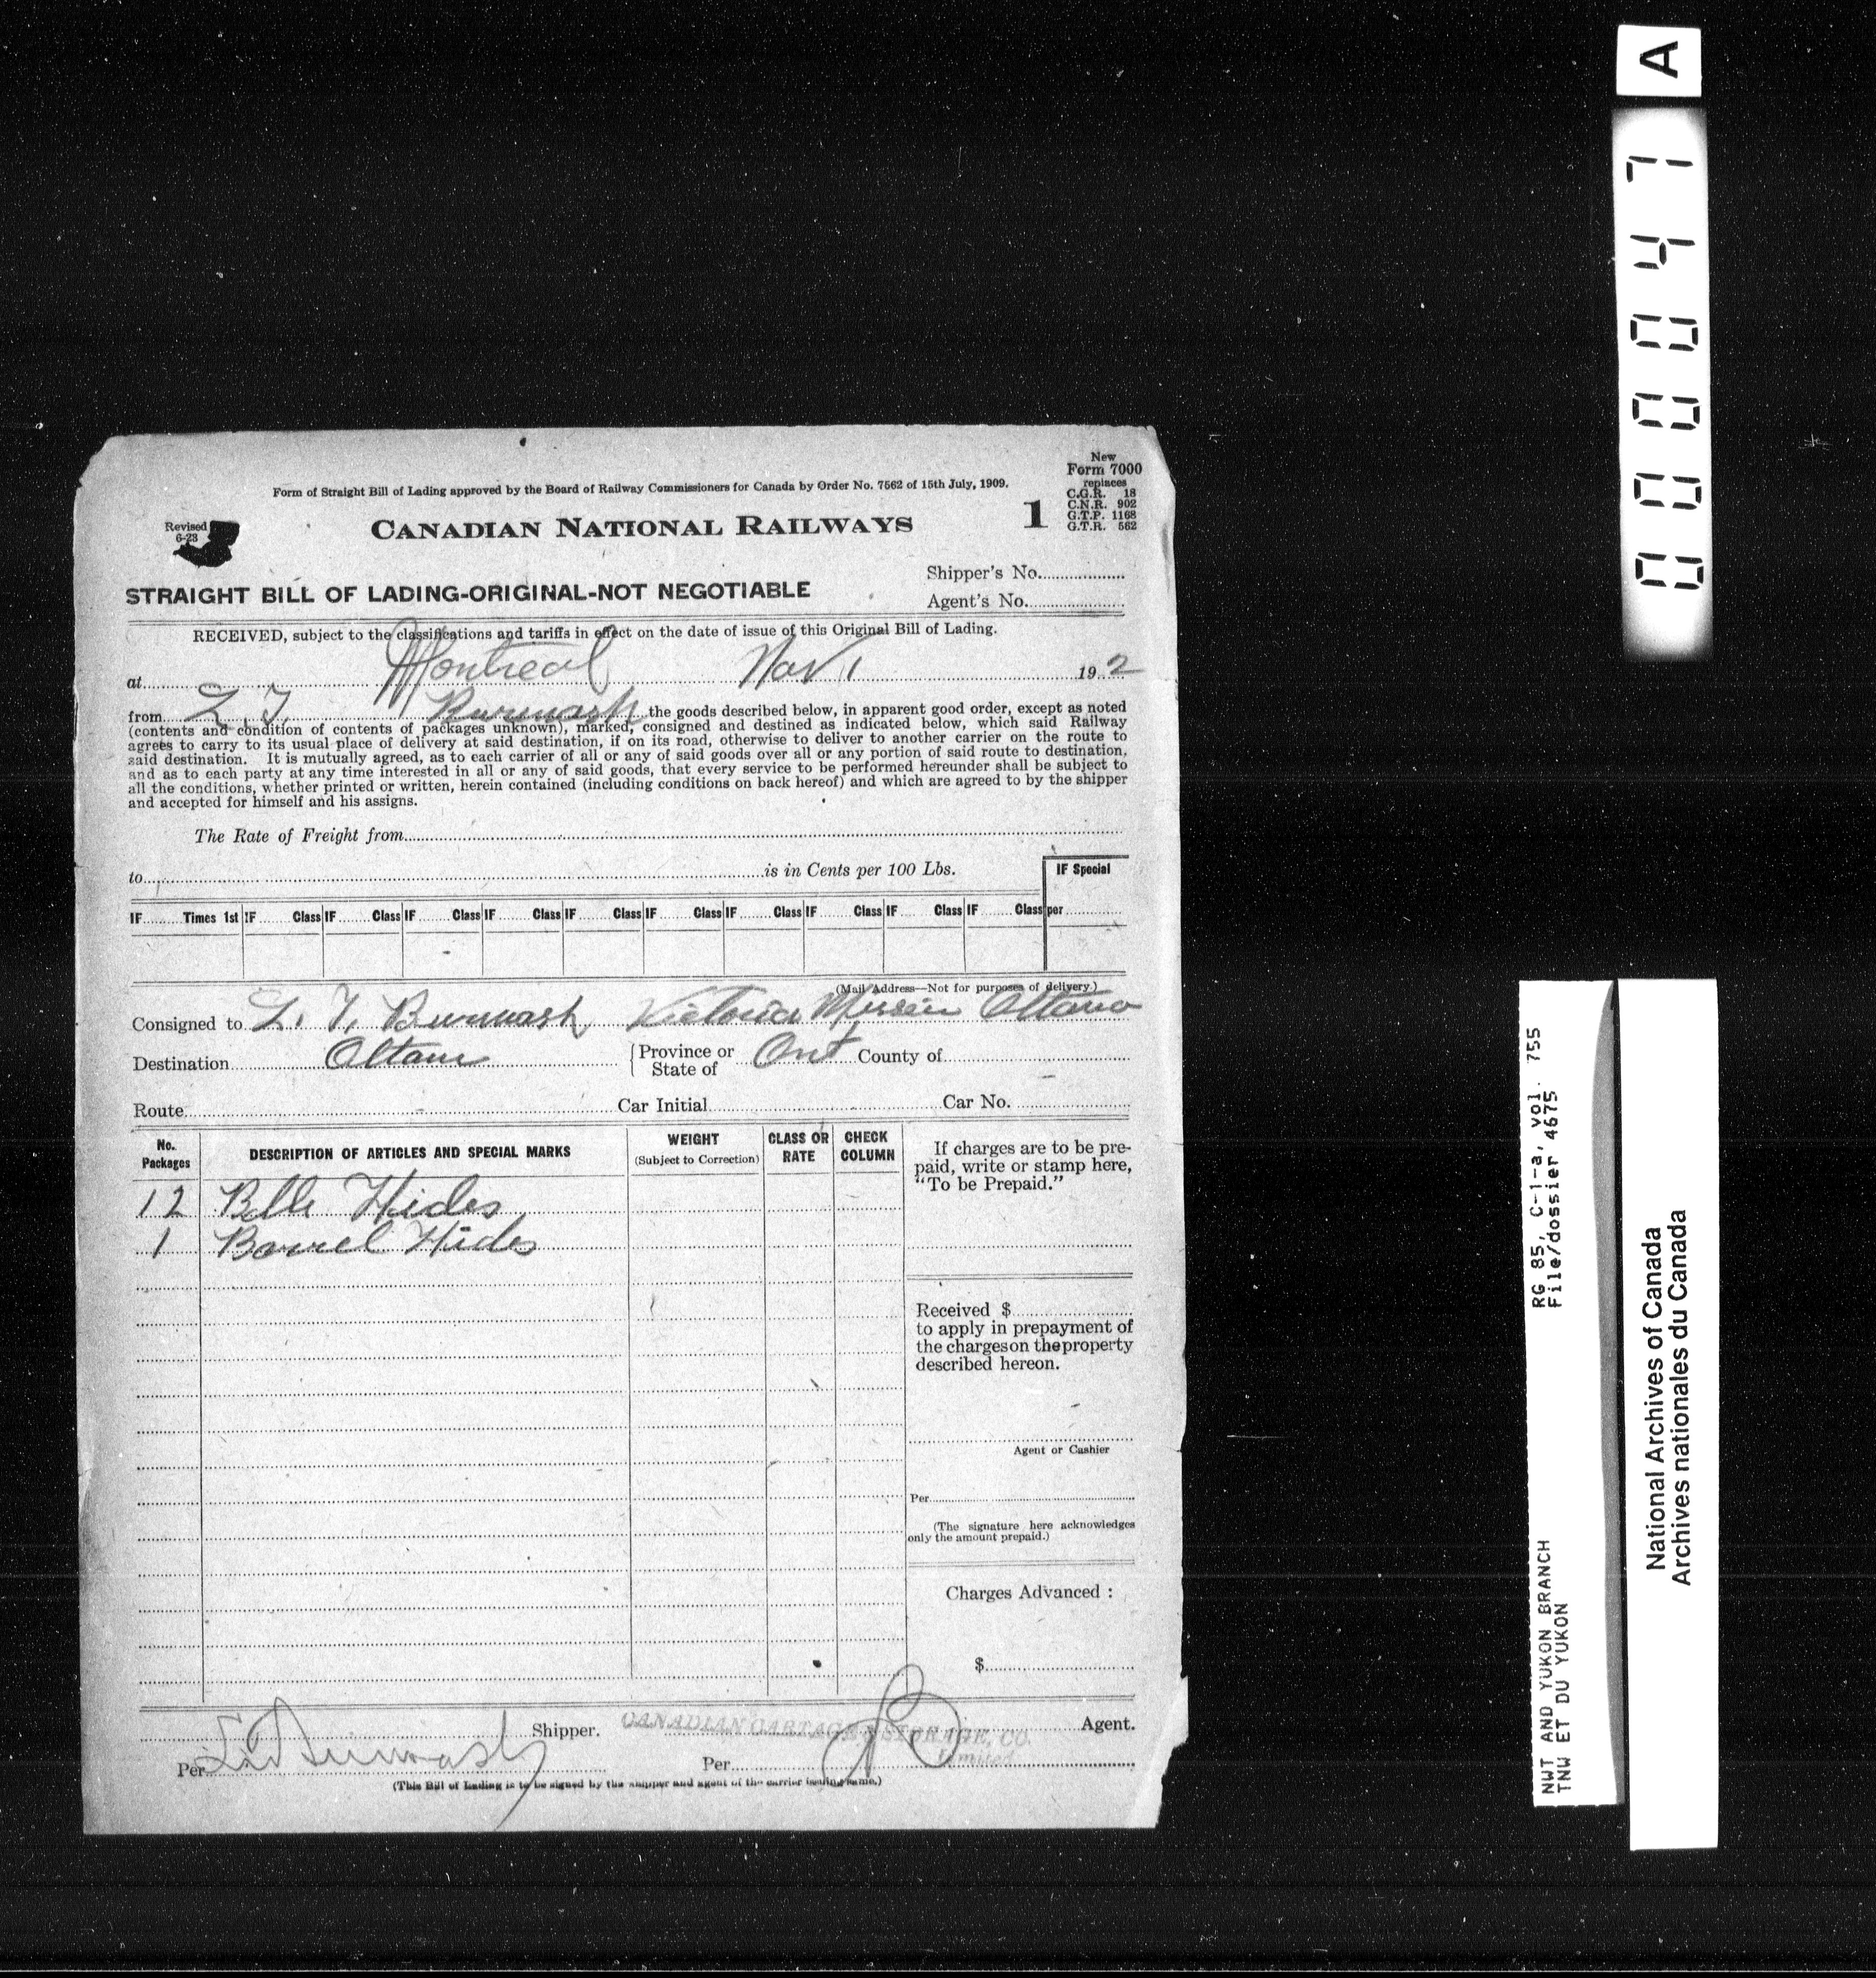 New
Form 7000
replaces
C.G.R. 18
C.N.R. 902
G.T.P. 1168
G.T.R. 562
Form of Straight Bill of Lading approved by the Board of Railway Commissioners for Canada by Order No. 7562 of 15th July, 1909.
Revised
6-23
CANADIAN NATIONAL RAILWAYS
1
STRAIGHT BILL OF LADING-ORIGINAL-NOT NEGOTIABLE
Shipper's No.
Agent's No.
RECEIVED, subject to the classifications and tariffs in effect on the date of issue of this Original Bill of Lading.
at Montreal Nov 1 192
from L. T. Burwash the goods described below, in apparent good order, except as noted
(contents and condition of contents of packages unknown), marked, consigned and destined as indicated below, which said Railway
agrees to carry to its usual place of delivery at said destination, if on its road, otherwise to deliver to another carrier on the route to
said destination. It is mutually agreed, as to each carrier of all or any of said goods over all or any portion of said route to destination,
and as to each party at any time interested in all or any of said goods, that every service to be performed hereunder shall be subject to
all the conditions, whether printed or written, herein contained (including conditions on back hereof) and which are agreed to by the shipper
and accepted for himself and his assigns.
The Rate of Freight from
to is in Cents per 100 Lbs.
IF Special
IF Times 1st IF Class IF Class IF Class IF Class IF Class IF Class IF Class IF Class IF Class IF Class per
(Mail Address—Not for purposes of delivery.)
Consigned to L. T. Burwash Victoria Ottawa
Destination Ottawa Province or State of Ont County of
Route Car Initial Car No.
No. Packages DESCRIPTION OF ARTICLES AND SPECIAL MARKS WEIGHT (Subject to Correction) CLASS OR RATE CHECK COLUMN
12 Bdls Hides
1 Barrel Hides
If charges are to be pre-
paid, write or stamp here,
"To be Prepaid."
Received $
to apply in prepayment of
the charges on the property
described hereon.
Agent or Cashier
Per
(The signature here acknowledges
only the amount prepaid.)
Charges Advanced :
$
Shipper. CANADIAN CARTAGE & STORAGE, CO. Agent.
Limited
Per L. T. Burwash Per
(This Bill of Lading is to be signed by the shipper and agent of the carrier issuing same.)
A
000047
RG 85, C-1-a, vol. 755
File/dossier 4675
NWT AND YUKON BRANCH
TNW ET DU YUKON
National Archives of Canada
Archives nationales du Canada